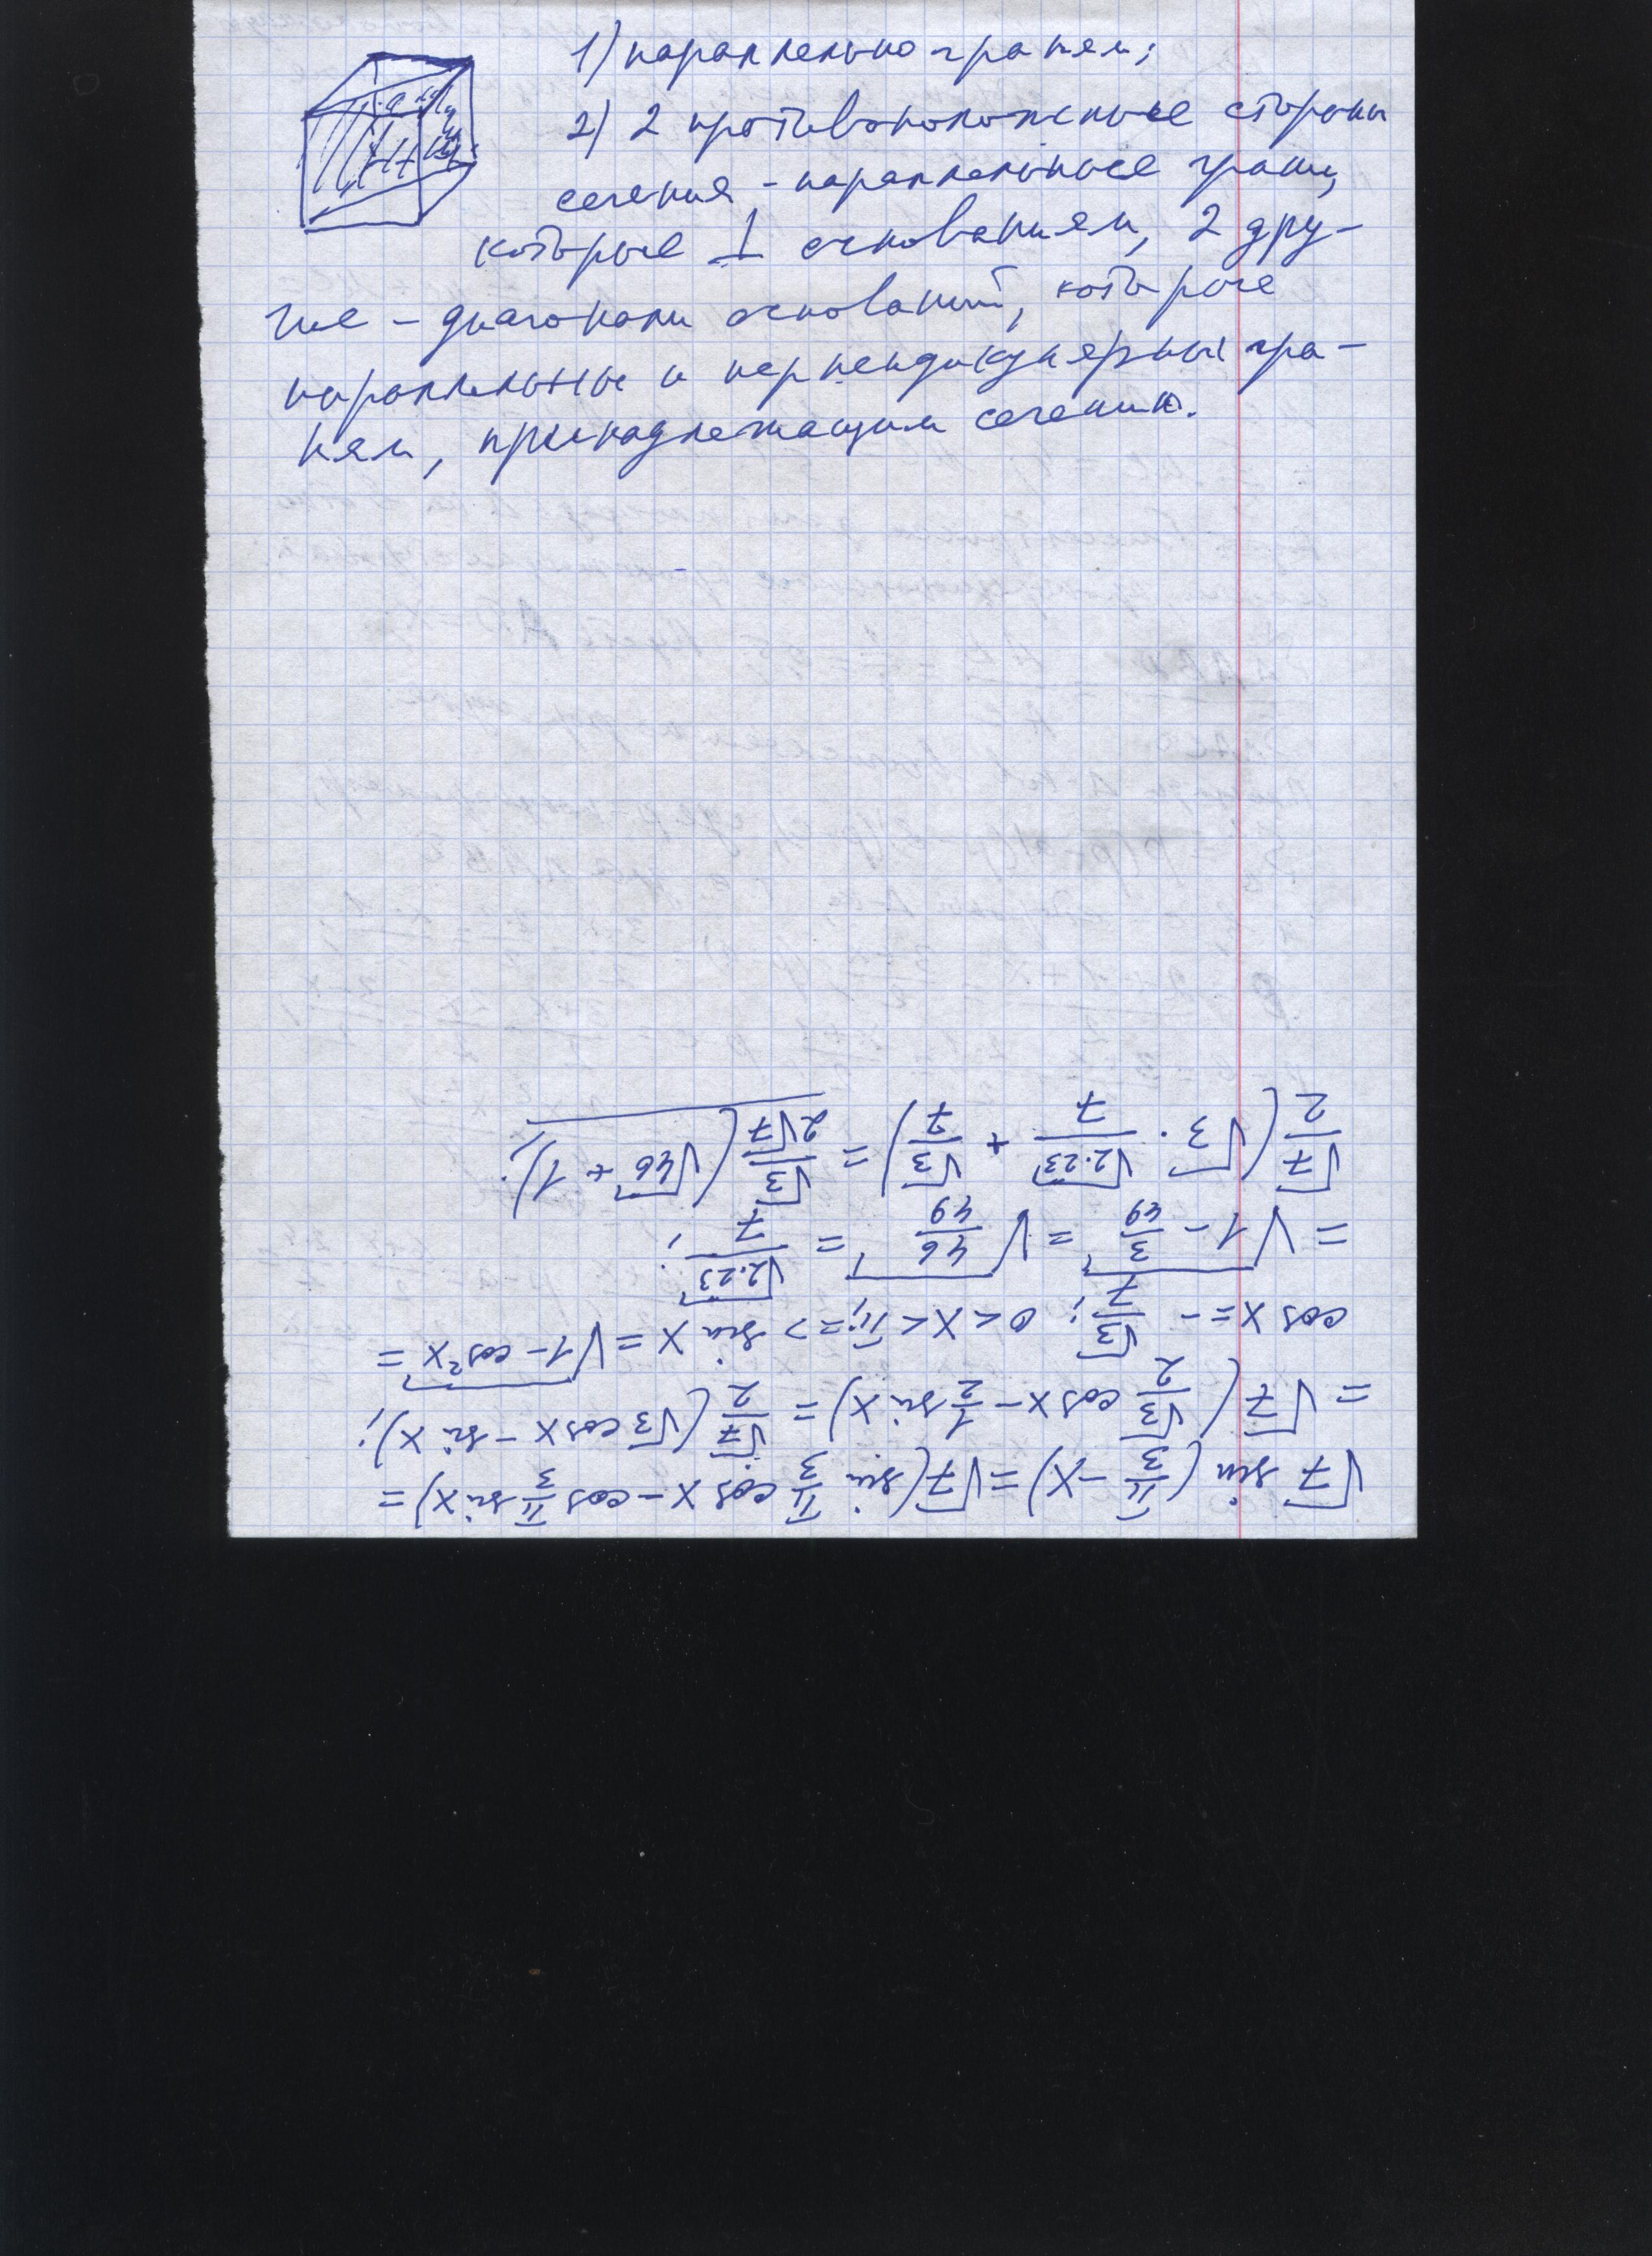 1) параллельно граням;
2) 2 противоположные стороны
сечения - параллельные грани,
которые ⊥ основаниям, 2 дру-
гие - диагонали оснований, которые
параллельны и перпендикулярны гра-
ням, принадлежащим сечению.
√7 sin (π/3 - x) = √7 (sin π/3 cos x - cos π/3 sin x) =
= √7 (√3/2 cos x - 1/2 sin x) = √7/2 (√3 cos x - sin x);
cos x = - √3/7; 0 < x < π; => sin x = √(1 - cos²x) =
= √(1 - 3/49) = √(46/49) = √(2·23)/7;
√7/2 (√3 · √(2·23)/7 + √3/7) = √3/(2√7) (√46 + 1);